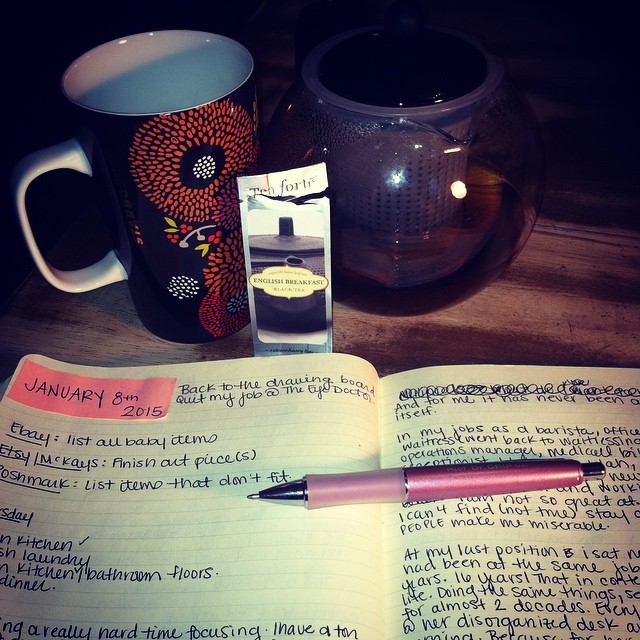 Tea forté
ENGLISH BREAKFAST
BLACK TEA
JANUARY 8th
2015
Back to the drawing board
Quit my job @ The Eye Doctor.
Ebay: list all baby items
Etsy/McKays: Finish art piece(s)
Poshmark: List items that don't fit
sday
n Kitchen ✓
sh laundry
n kitchen/bathroom floors.
dinner.
ng a really hard time focusing. I have a ton
And for me it has never been a
itself.
In my jobs as a barista, office
waitress went back to waitressing
operations manager,
am not so great at
I can't find (not true) stay
PEOPLE make me miserable.
At my last position I sat n
had been at the same job
years. 16 years! That in
life. Doing the same things, se
for almost 2 decades. Every
@ her disorganized desk a
Because